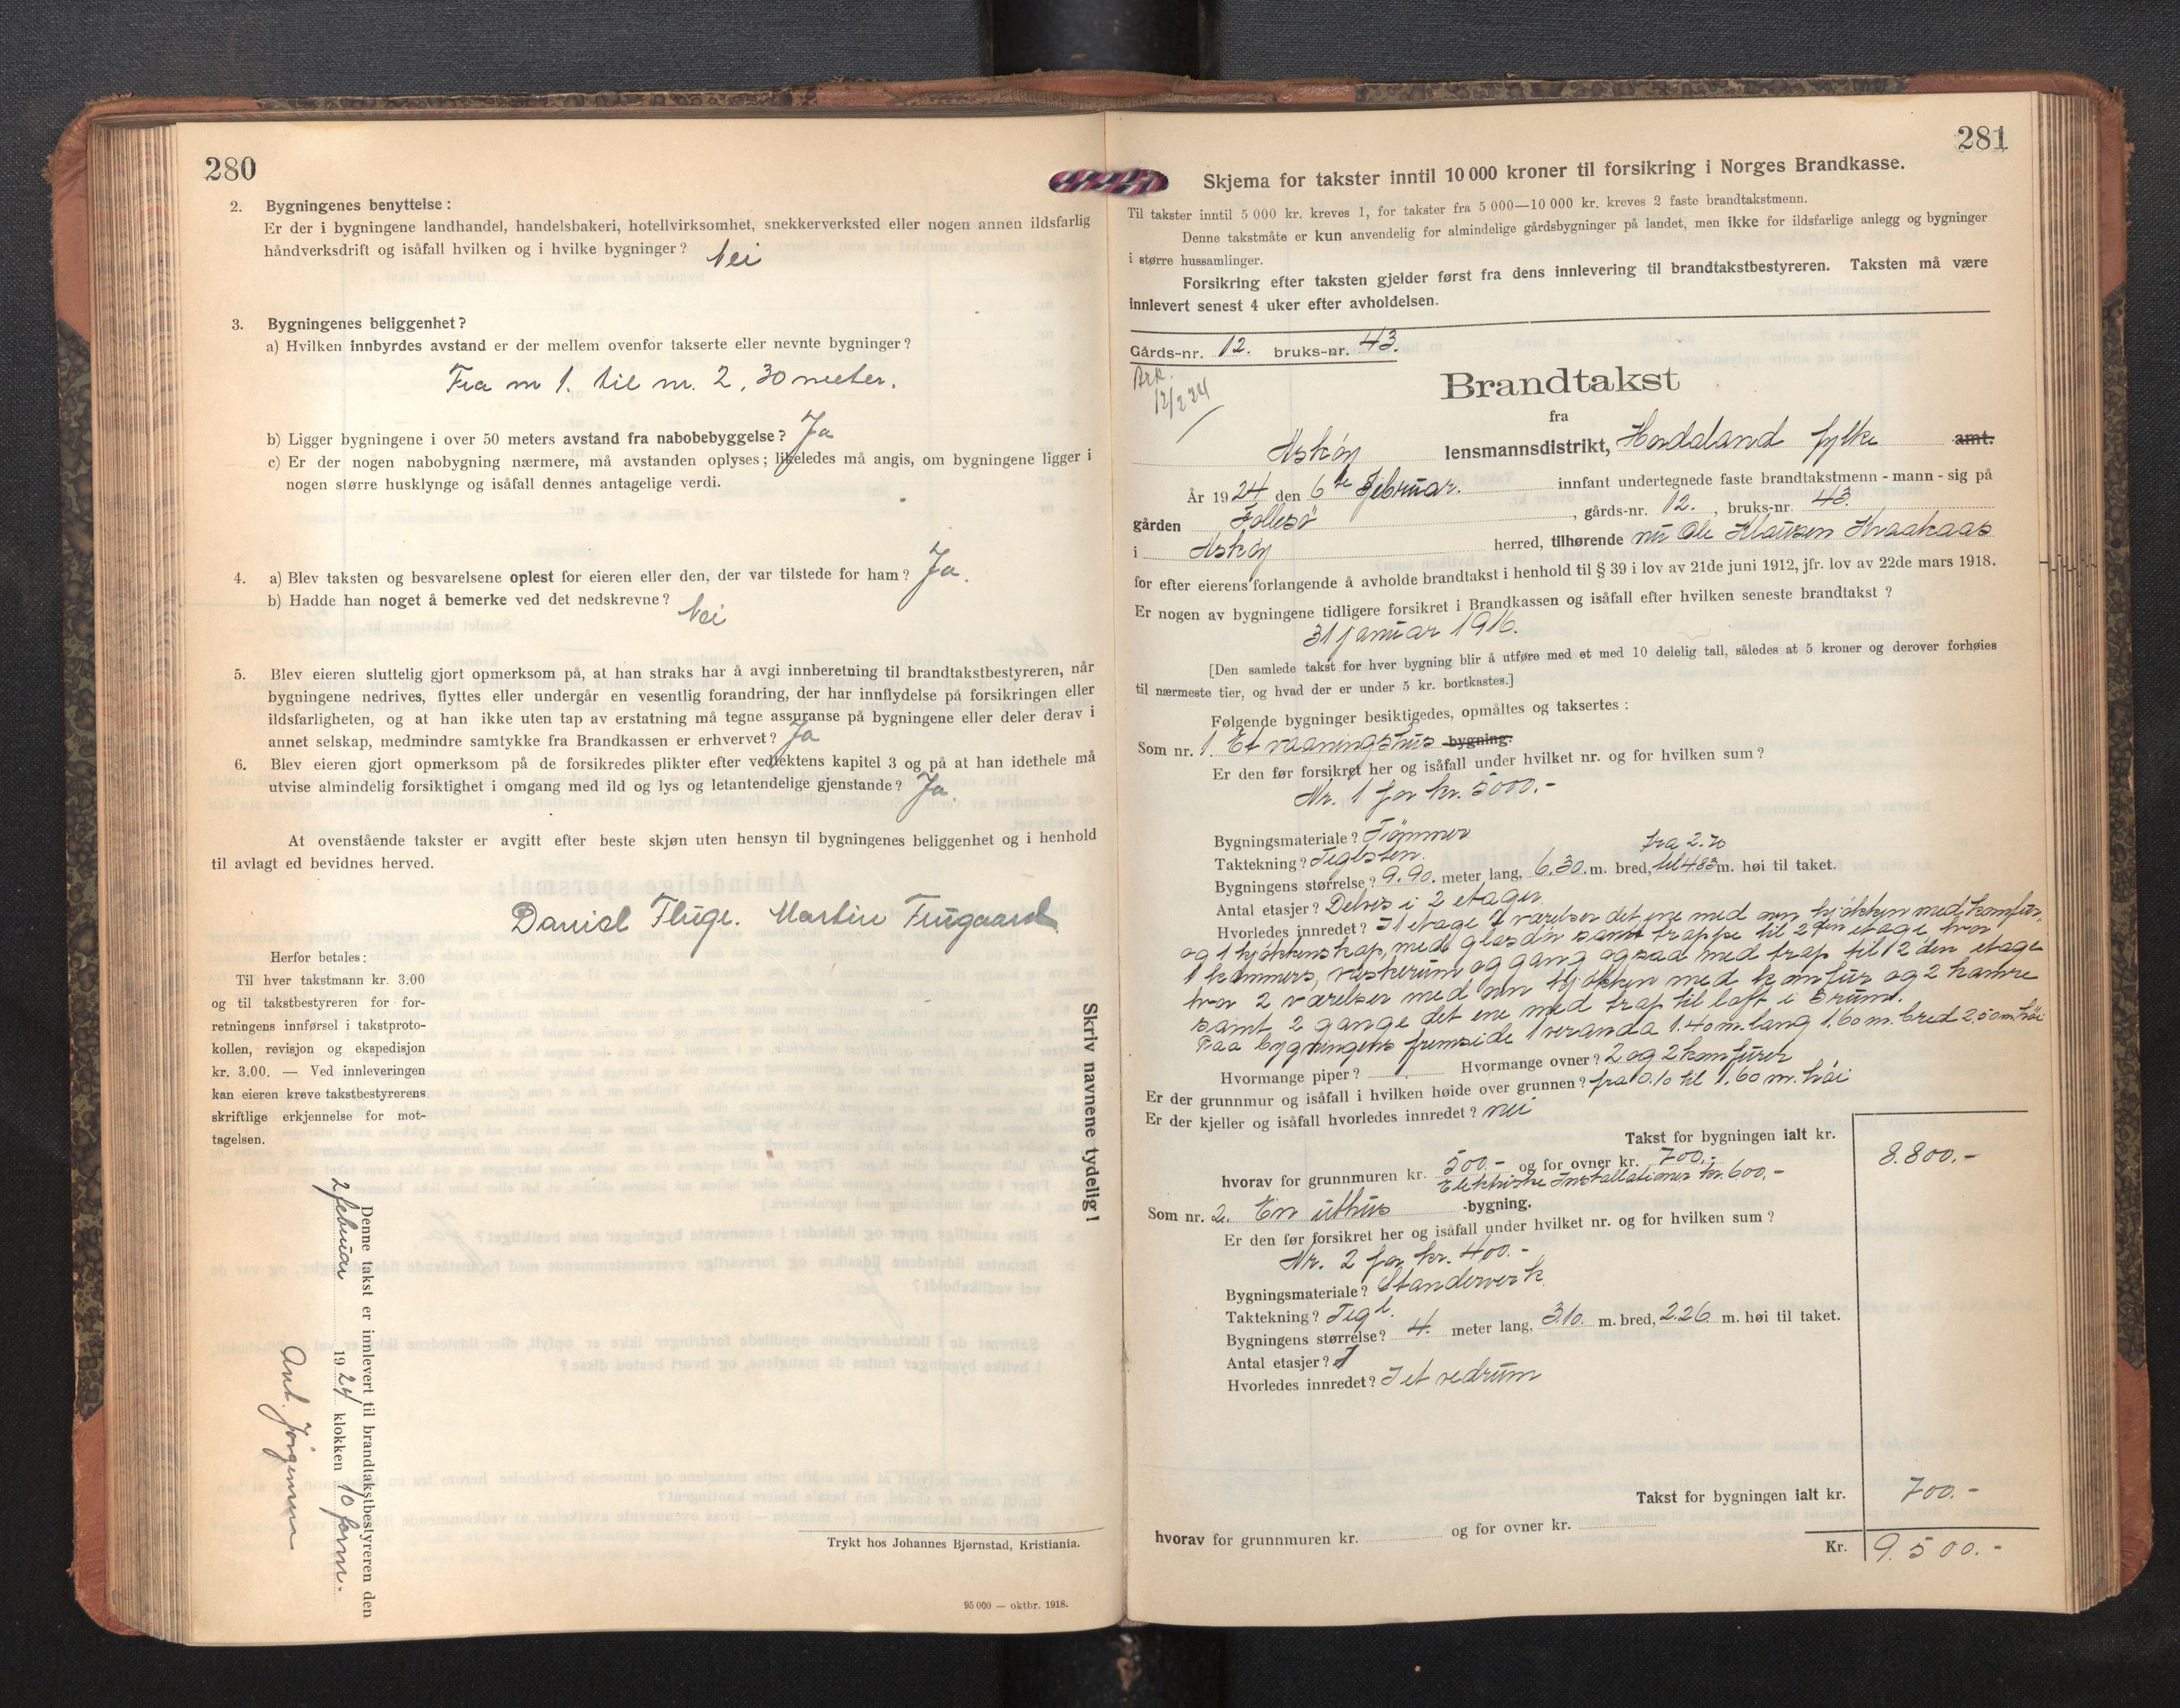 280
2. Bygningenes benyttelse :
Er der i bygningene landhandel, handelsbakeri, hotellvirksomhet, snekkerverksted eller nogen annen ildsfarlig
håndverksdrift og isåfall hvilken og i hvilke bygninger? Nei
3. Bygningenes beliggenhet?
a) Hvilken innbyrdes avstand er der mellem ovenfor takserte eller nevnte bygninger?
Fra nr 1. til nr. 2, 30 meter.
b) Ligger bygningene i over 50 meters avstand fra nabobebyggelse? Ja
c) Er der nogen nabobygning nærmere, må avstanden oplyses; likeledes må angis, om bygningene ligger i
nogen større husklynge og isåfall dennes antagelige verdi.
4. a) Blev taksten og besvarelsene oplest for eieren eller den, der var tilstede for ham? Ja.
b) Hadde han noget å bemerke ved det nedskrevne? Nei
5. Blev eieren sluttelig gjort opmerksom på, at han straks har å avgi innberetning til brandtakstbestyreren, når
bygningene nedrives, flyttes eller undergår en vesentlig forandring, der har innflydelse på forsikringen eller
ildsfarligheten, og at han ikke uten tap av erstatning må tegne assuranse på bygningene eller deler derav i
annet selskap, medmindre samtykke fra Brandkassen er erhvervet? Ja
6. Blev eieren gjort opmerksom på de forsikredes plikter efter vedtektens kapitel 3 og på at han idethele må
utvise almindelig forsiktighet i omgang med ild og lys og letantendelige gjenstande? Ja.
At ovenstående takster er avgitt efter beste skjøn uten hensyn til bygningenes beliggenhet og i henhold
til avlagt ed bevidnes herved.
Daniel Fluge. Martin Frugaard
Herfor betales :
Til hver takstmann kr. 3.00
og til takstbestyreren for for-
retningens innførsel i takstproto-
kollen, revisjon og ekspedisjon
kr. 3.00. — Ved innleveringen
kan eieren kreve takstbestyrerens
skriftlige erkjennelse for mot-
tagelsen.
Skriv navnene tydelig!
Denne takst er innlevert til brandtakstbestyreren den
2 februar 1924 klokken 10 form.
Ant. Jörgensen
Trykt hos Johannes Bjørnstad, Kristiania.
95 000 — oktbr. 1918.
281
Skjema for takster inntil 10 000 kroner til forsikring i Norges Brandkasse.
Til takster inntil 5 000 kr. kreves 1, for takster fra 5 000—10 000 kr. kreves 2 faste brandtakstmenn.
Denne takstmåte er kun anvendelig for almindelige gårdsbygninger på landet, men ikke for ildsfarlige anlegg og bygninger
i større hussamlinger.
Forsikring efter taksten gjelder først fra dens innlevering til brandtakstbestyreren. Taksten må være
innlevert senest 4 uker efter avholdelsen.
Gårds-nr. 12. bruks-nr. 43.
Ark.
12/2 24
Brandtakst
fra
Askøy lensmannsdistrikt, Hordaland fylke amt.
År 1924 den 6te Februar. innfant undertegnede faste brandtakstmenn - mann - sig på
gården Follesö, gårds-nr. 12., bruks-nr. 43.
i Askøy herred, tilhørende nu Ole Klausen Kraakaas
for efter eierens forlangende å avholde brandtakst i henhold til § 39 i lov av 21de juni 1912, jfr. lov av 22de mars 1918.
Er nogen av bygningene tidligere forsikret i Brandkassen og isåfall efter hvilken seneste brandtakst ?
31 januar 1916.
[Den samlede takst for hver bygning blir å utføre med et med 10 delelig tall, således at 5 kroner og derover forhøies
til nærmeste tier, og hvad der er under 5 kr. bortkastes.]
Følgende bygninger besiktigedes, opmåltes og taksertes :
Som nr. 1. Et vaaningshus -bygning.
Er den før forsikret her og isåfall under hvilket nr. og for hvilken sum?
Nr. 1 for kr. 5000.-
Bygningsmateriale? Tømmer
Taktekning? Teglsten.
fra 2.70
Bygningens størrelse? 9.90. meter lang, 6.30. m. bred, til 4.83 m. høi til taket.
Antal etasjer? Delvis i 2 etager.
Hvorledes innredet? I 1 etage 2 værelser det ene med som kjøkken med komfur,
og 1 kjøkkenskap, med glasdør samt trappe til 2den etage hvor
1 kammers, vaskerum og gang ogsaa med trap til 2den etage
hvor 2 værelser med som kjøkken med komfur og 2 kamre
samt 2 gange det ene med trap til loft i 3 rum.
Paa bygningens fremside 1 veranda 1.40 m. lang 1.60 m. bred 2.50 m. høi
Hvormange piper? Hvormange ovner? 2 og 2 komfurer
Er der grunnmur og isåfall i hvilken høide over grunnen? fra 0.10 til 1.60 m. høi
Er der kjeller og isåfall hvorledes innredet? nei
Takst for bygningen ialt kr. 8.800.-
hvorav for grunnmuren kr. 500.- og for ovner kr. 700.-
Elektriske Installationer kr. 600.-
Som nr. 2. En uthus -bygning.
Er den før forsikret her og isåfall under hvilket nr. og for hvilken sum?
Nr. 2 for kr. 400.-
Bygningsmateriale? Standerverk
Taktekning? Tegl.
Bygningens størrelse? 4. meter lang, 3.10. m. bred, 2.26 m. høi til taket.
Antal etasjer? 1
Hvorledes innredet? I et vedrum
Takst for bygningen ialt kr. 700.-
hvorav for grunnmuren kr. og for ovner kr.
Kr. 9.500.-